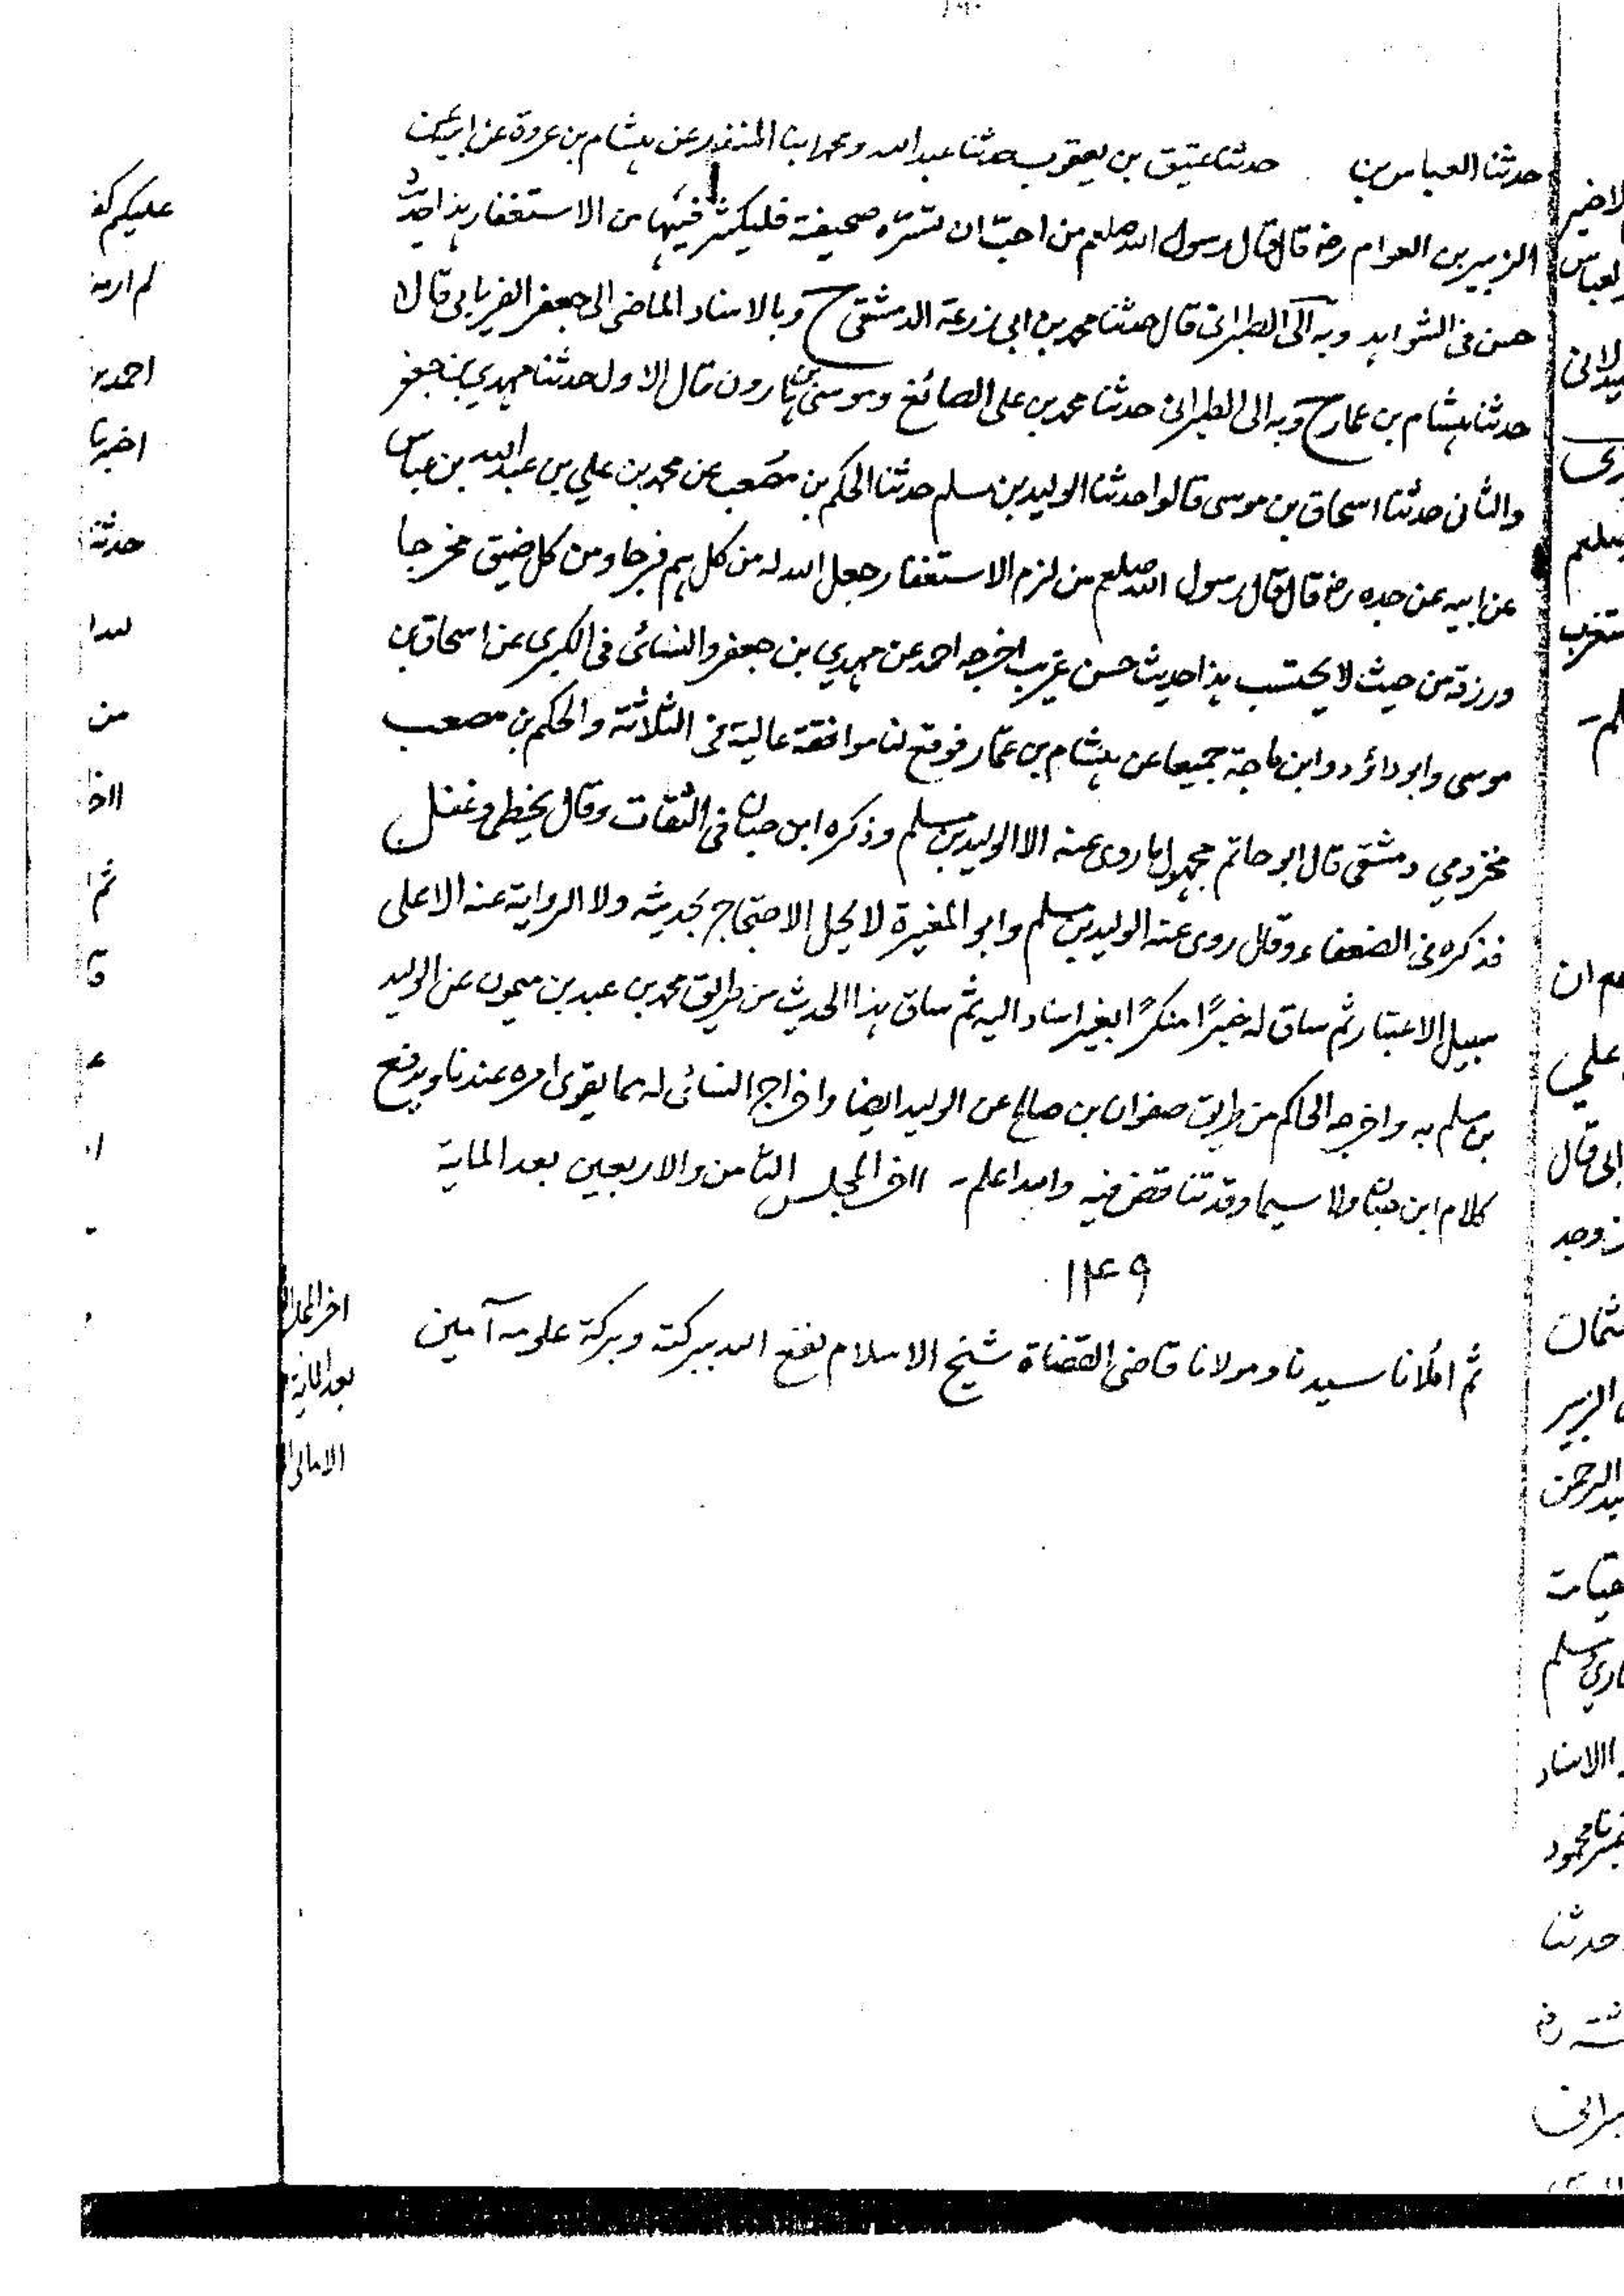 حدثنا العباس بن حدثنا عتيق بن يعقوب حدثنا عبد الله ومحمد ابنا المنذر عن هشام بن عروة عن ابيه عن
الزبير بن العوام رضه قال قال رسول الله صلعم من احبّ ان تسرّه صحيفة فليكثر فيها من الاستغفار هذا حديث
حسن فى الشواهد وبه الى الطبرانى قال حدثنا محمد بن ابى زرعة الدمشقى ح وبالاسناد الماضى الى جعفر الفريابى قالا
حدثنا هشام بن عمار ح وبه الى الطبرانى حدثنا محمد بن على الصائغ وموسى بن هارون قال الاول حدثنا مهدي بن جعفر
والثانى حدثنا اسحاق بن موسى قالوا حدثنا الوليد بن مسلم حدثنا الحكم بن مصعب عن محمد بن علي بن عبد الله بن عباس
عن ابيه عن جده رضه قال قال رسول الله صلعم من لزم الاستغفار جعل الله له من كل هم فرجا ومن كل ضيق مخرجا
ورزقه من حيث لا يحتسب هذا حديث حسن غريب اخرجه احمد عن مهدي بن جعفر والنسائى فى الكبرى عن اسحاق بن
موسى وابو داؤد وابن ماجة جميعا عن هشام بن عمّار فوقع لنا موافقة عالية فى الثلاثة والحكم بن مصعب
مخزومي دمشقى قال ابو حاتم مجهول ما روى عنه الا الوليد بن مسلم وذكره ابن حبان فى الثقات وقال يخطى وغفل
فذكره فى الضعفاء وقال روى عنه الوليد بن مسلم وابو المغيرة لا يحل الاحتجاج بحديثه ولا الرواية عنه الا على
سبيل الاعتبار ثم ساق له خبرًا منكرًا بغير اسناد اليه ثم ساق هذا الحديث من طريق محمد بن عبد بن ميمون عن الوليد
بن مسلم به واخرجه الحاكم من طريق صفوان بن صالح عن الوليد ايضا واخراج النسائى له مما يقوى امره عندنا ويدفع
كلام ابن حبان ولا سيما وقد تناقض فيه والله اعلم - اخر المجلس الثامن والاربعين بعد الماية
١٤٩
ثم املانا سيدنا ومولانا قاضى القضاة شيخ الاسلام نفع الله ببركته وبركة علومه آمين
عليكم
احمد بن
اخبرنا
من
اخر المجلس
بعد الماية
الامالى
صلعم
علي
قال
الزبير
الاسناد
محمود
حدثنا